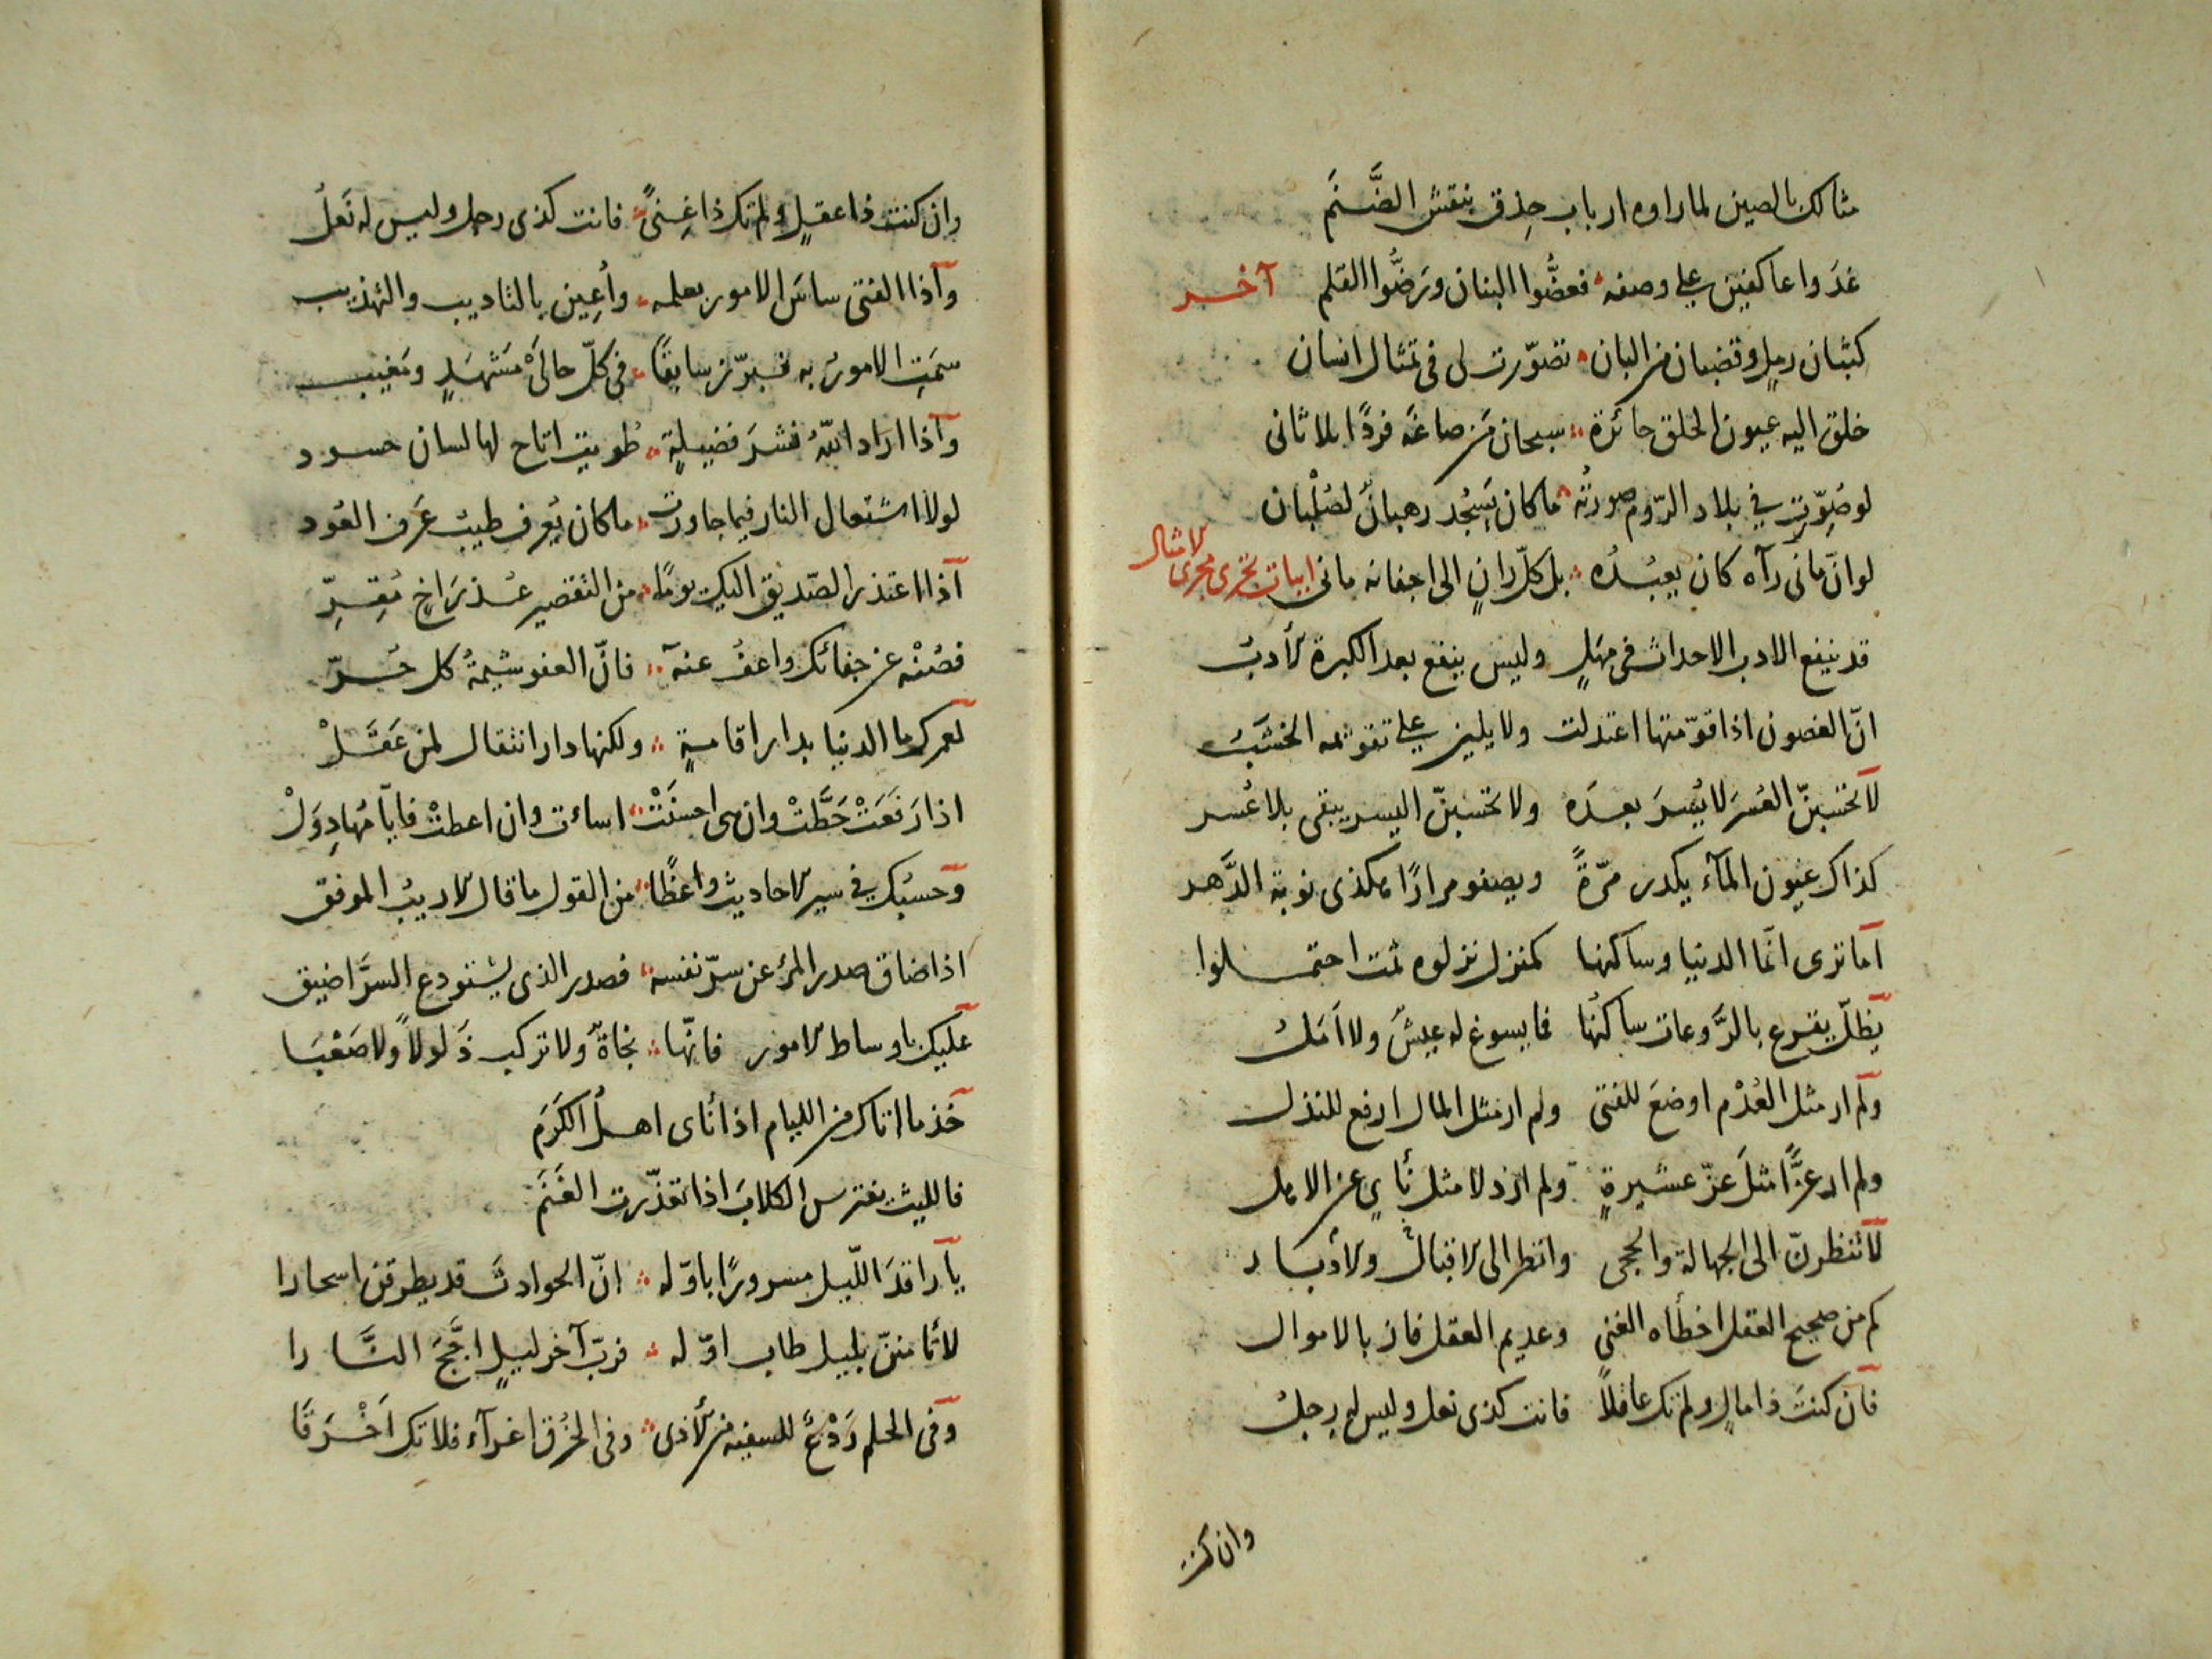 مثالك بالصين لما راوه ارباب حِذق بنقش الصَّنَم
غدَوا عاكفين على وصفه فعضُّوا البنان ورَضُّوا القلم آخر
كثبان رملٍ وقضبان من البان تصوّرت لى فى تمثال انسان
خلق اليه عيون الخلق حائرة سبحان مَن صاغه فردًا بلا ثانى
لو صُوّرت في بلاد الرّوم صورتُه ما كان يَسجُد رهبانٌ لصُلْبان
لو انّ مانى رآه كان يعبُدُه بل كلّ رانٍ الى اجفانه مانى ابيات تجرى مجرى الامثال
قد ينفع الادب الاحداث فى مهَلٍ وليس ينفع بعد الكبرة الأدبُ
انّ الغصون اذا قوّمتها اعتدلت ولا يلين على تقويمه الخشَبُ
لا تحسبنّ العُسرَ لا يُسرَ بعدَه ولا تحسبنّ اليسر يبقى بلا عُسر
كذاك عيون المآء يكدر مرّةً ويصفو مرارًا هكذى نوبة الدَّهر
اما ترى انّما الدنيا وساكنها كمنزل نزلوه ثمت احتملوا
يظلّ يقرع بالرَّوعات ساكنُها فما يسوغ له عيشٌ ولا امَلُ
ولم ار مثل العُدْم اوضعَ للفتى ولم ار مثل المال ارفع للنذل
ولم ار عزًّا مثلَ عزّ عشيرةٍ ولم ار ذلا مثل نأيٍ عن الاهل
لا تنظرنّ الى الجهالة والحجى وانظر الى الاقبال والأدبار
كم من صحيح العقل اخطأه الغنى وعديم العقل فاز بالاموال
فان كنتَ ذا مالٍ ولم تك عاقلاً فانت كذى نعل وليس له رجلُ
وان كنت
وان كنت ذا عقلٍ ولم تك ذا غِنىً فانت كذى رجل وليس له نَعلُ
واذا الفتى ساسَ الامور بعلمه واُعِين بالتاديب والتهذيب
سمَتِ الامورُ به فبرّز سابقًا فى كلّ حالَىْ مَشهَدٍ ومَغيب
واذا اراد اللّهُ نشرَ فضيلةٍ طُويت اتاح لها لسان حسود
لولا اشتعال النار فيما جاورت ما كان يُعرف طيبُ عَرف العُود
اذا اعتذر الصّديق اليك يومًا من التقصير عُذرَ اخٍ مُقِرِّ
فصُنْه عن جفائك واعفُ عنه فانّ العفو شيمةُ كل حُرّ
لعمرك ما الدنيا بدار اقامةٍ ولكنها دار انتقال لمن عَقَلْ
اذا رَفَعَتْ حَطَّتْ وان هى احسنَتْ اساءت وان اعطتْ فايّامُها دِوَلْ
وحسبُك في سير الاحاديث واعظًا من القول ما قال الاديبُ الموفق
اذا ضاق صدر المرْء عن سرّ نفسه فصدر الذى يستودع السرَّ اضيق
عليك باوساط الامور فانّها نجاةٌ ولا تركب ذَلولاً ولا صَعْبَا
خذ ما اتاك من الليام اذا نأى اهلُ الكَرَم
فالليث يفترس الكلابَ اذا تعذّرت الغَنَم
يا راقدَ اللّيل مسرورًا باوّله انّ الحوادثَ قد يطرقن اسحارا
لا تأمننّ بليل طاب اوّله فربّ آخر ليلٍ اجَّجَ النَّارا
وفى الحلم رَدْعٌ للسفيه من الأذى وفى الخُرق اغرآء فلا تك اَخْرَقَا